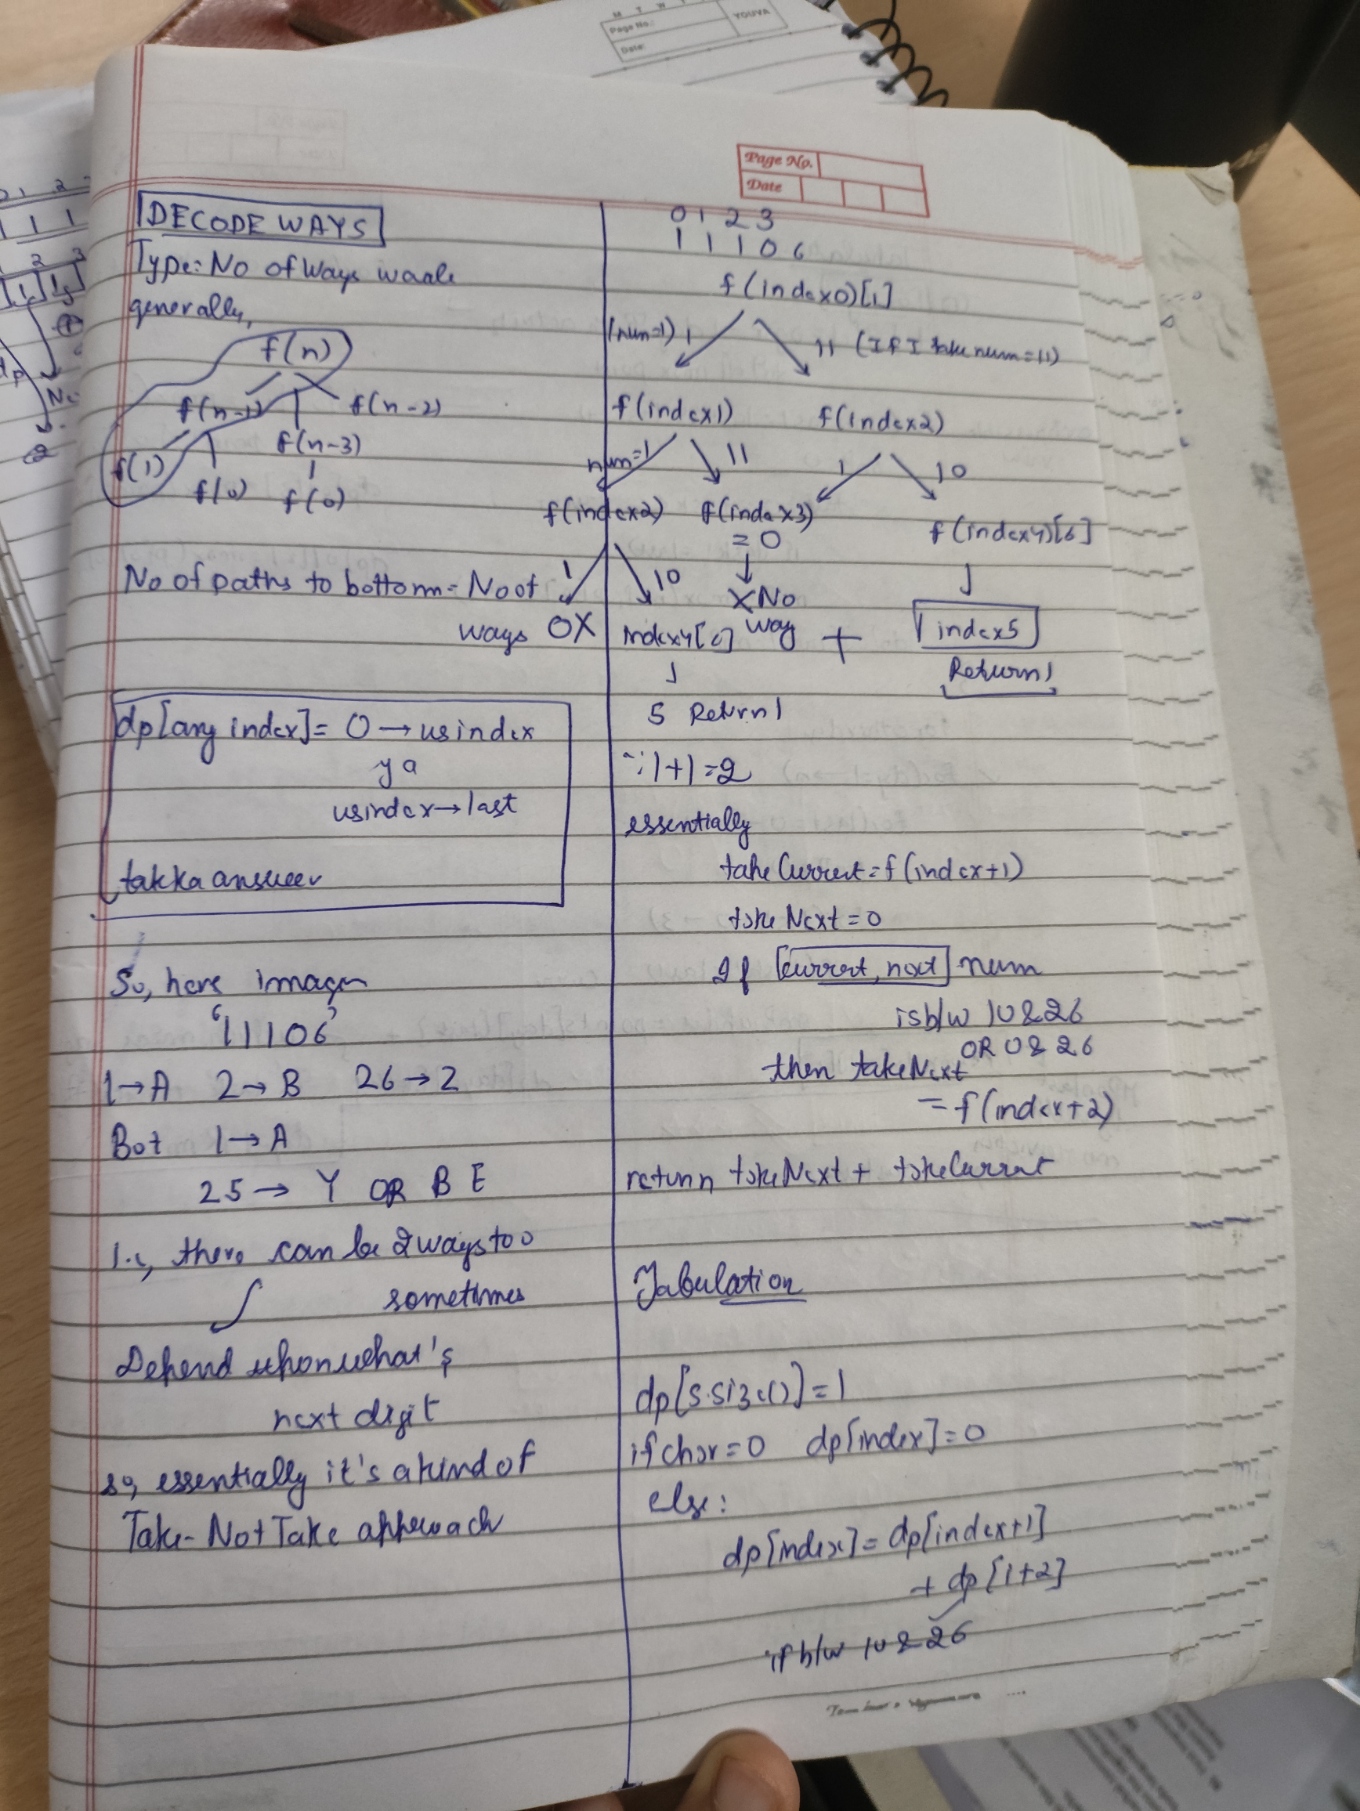 YOUVA
Page No.:
Date:
Page No.
Date
DECODE WAYS
Type: No of Ways waale
generally,
f(n)
f(n-1) f(n-2)
f(n-3)
f(1)
f(0) f(0)
No of paths to bottom = No of
ways
dp[any index] = 0 → us index
ya
us index → last
takka answer
So, here
"11106"
1→A 2→B 26→Z
Bot 1→A
25→ Y OR B E
I.e, there can be 2 ways too
sometimes
Depend upon what's
next digit
so, essentially it's a kind of
Take-Not Take approach
0 1 2 3
1 1 1 0 6
f(index0)[1]
(num=1) 1 11 (If I take num=11)
f(index1) f(index2)
num=1 11 1 10
f(index2) f(index3) f(index4)[6]
= 0
1 10
X No
way
0X index4[6] + index5
Return 1
5 Return 1
∵ 1+1=2
essentially
takeCurrent = f(index+1)
takeNext = 0
If [current, next] num
is b/w 10 & 26
OR 0 & 26
then takeNext
= f(index+2)
return takeNext + takeCurrent
Tabulation
dp[s.size()] = 1
if char = 0 dp[index] = 0
else:
dp[index] = dp[index+1]
+ dp[i+2]
if b/w 10 & 26